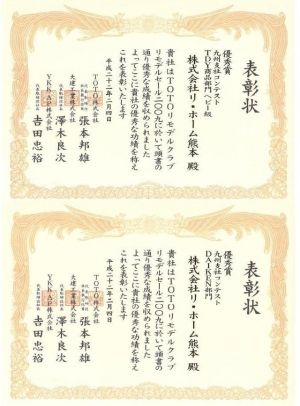 表彰状
優秀賞
九州支社コンテスト
TDY商品部門ヘビー級
株式会社リ・ホーム熊本 殿
貴社はTOTOリモデルクラブ
リモデルセール二〇〇九に於いて頭書の
通り優秀な成績を収められました
よってここに貴社の優秀な功績を称え
これを表彰いたします
平成二十二年二月四日
TOTO株式会社
張本邦雄
大建工業株式会社
澤木良次
YKK AP株式会社
吉田忠裕
表彰状
優秀賞
九州支社コンテスト
DAIKEN部門
株式会社リ・ホーム熊本 殿
貴社はTOTOリモデルクラブ
リモデルセール二〇〇九に於いて頭書の
通り優秀な成績を収められました
よってここに貴社の優秀な功績を称え
これを表彰いたします
平成二十二年二月四日
TOTO株式会社
張本邦雄
大建工業株式会社
澤木良次
YKK AP株式会社
吉田忠裕